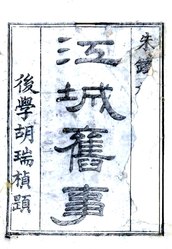 朱
江城舊事
後學胡瑞楨題